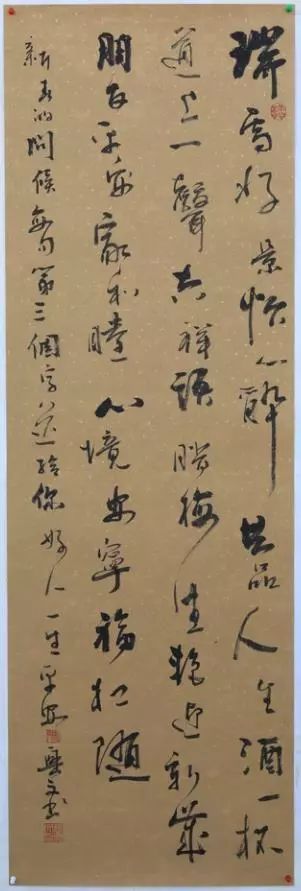 瑞雪好景怡心醉共品人生酒一杯
道上一聲吉祥語臘梅生艷迎新歲
朋友平安家和睦心境安寧福相隨
新春的問候每句第三個字送給你好人一生平安